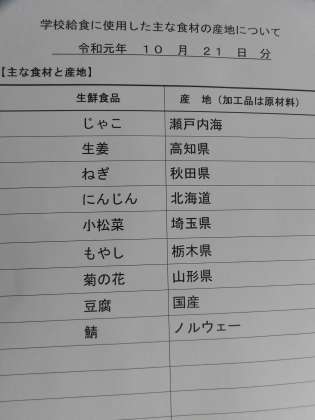 学校給食に使用した主な食材の産地について
令和元年 10 月 21 日 分
【主な食材と産地】
生鮮食品 産 地（加工品は原材料）
じゃこ 瀬戸内海
生姜 高知県
ねぎ 秋田県
にんじん 北海道
小松菜 埼玉県
もやし 栃木県
菊の花 山形県
豆腐 国産
鯖 ノルウェー